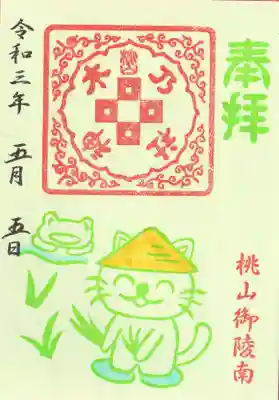 奉拝
桃山御陵南
令和三年 五月 五日